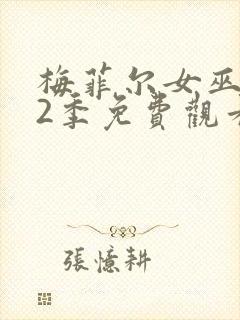 梅菲尔女巫
2季免費觀看
張憶耕